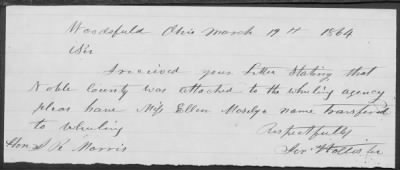 Woodsfield Ohio March 19th 1864
Sir
I received your Letter Stating that
Noble County was attached to the wheling agency
pleas have Mifs Ellen Mosilya name transferd
to wheling
Respectfully
Hon. S R Morris
Jer. Hollister